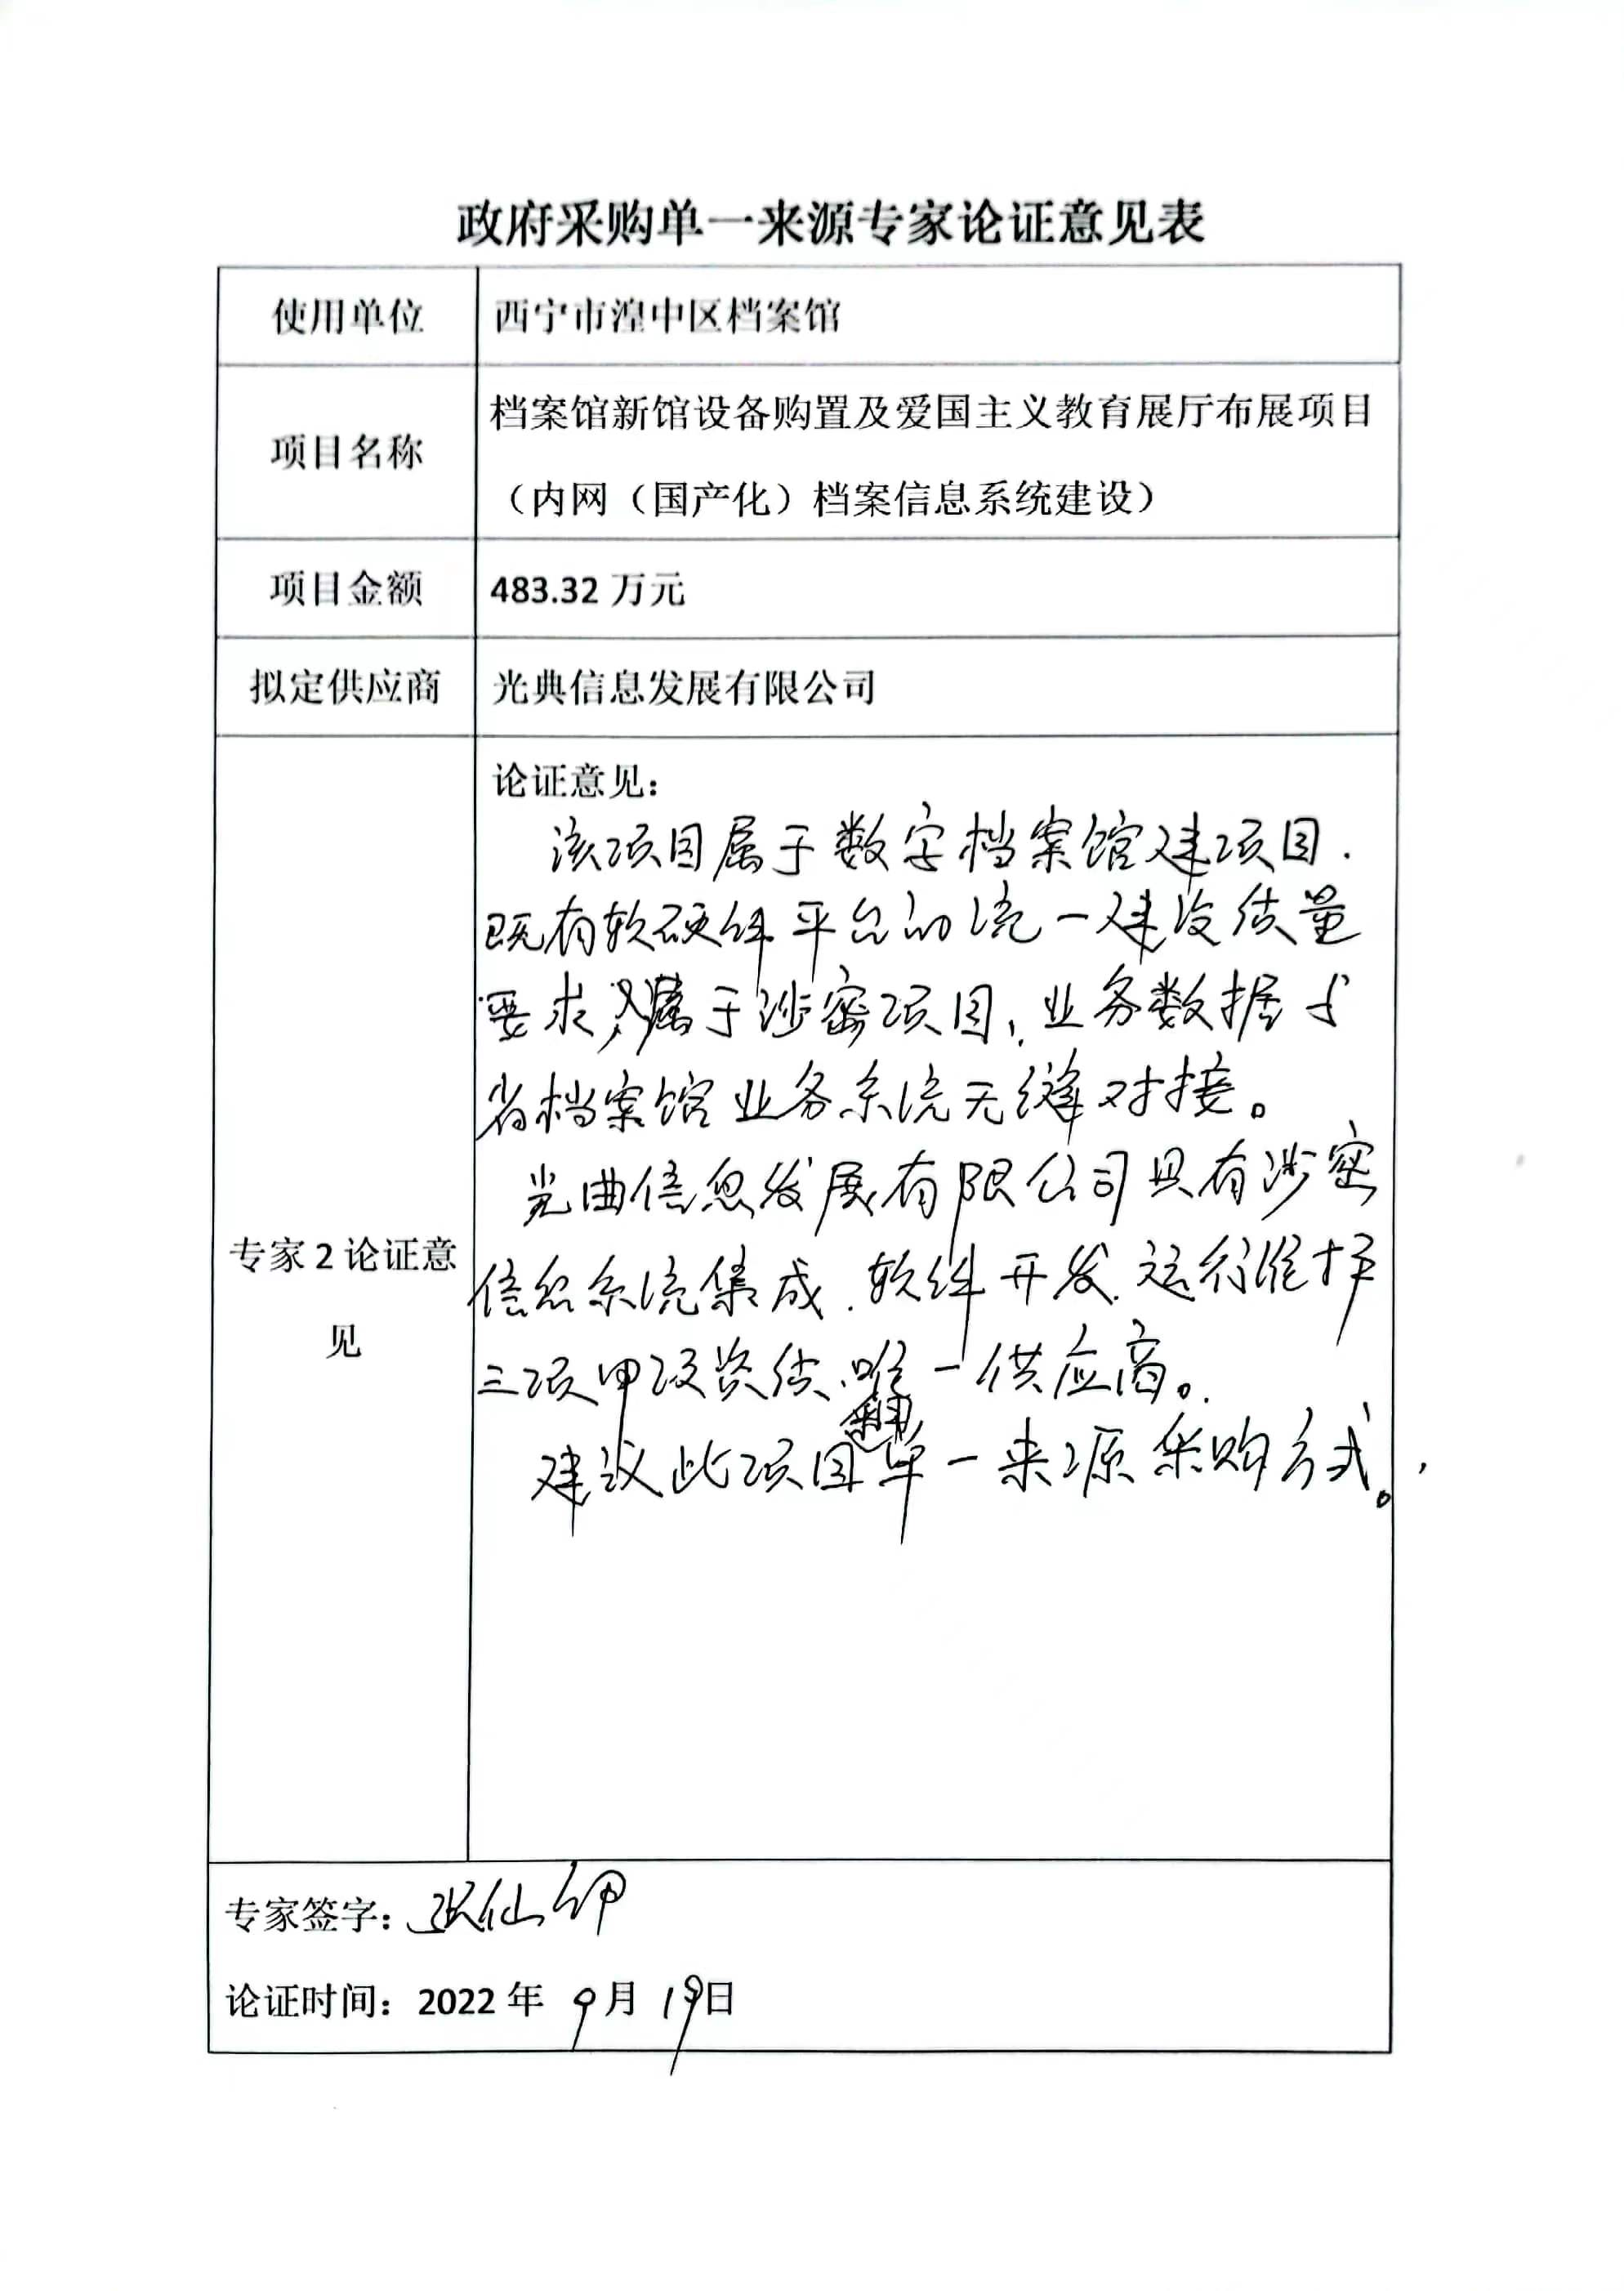 政府采购单一来源专家论证意见表
使用单位
西宁市湟中区档案馆
项目名称
档案馆新馆设备购置及爱国主义教育展厅布展项目
（内网（国产化）档案信息系统建设）
项目金额
483.32 万元
拟定供应商
光典信息发展有限公司
专家 2 论证意
见
论证意见：
该项目属于数字档案馆建项目.
既有软硬件平台的统一建设质量
要求,又属于涉密项目,业务数据与
省档案馆业务系统无缝对接。
光曲信息发展有限公司具有涉密
信息系统集成.软件开发.运行维护
三项甲级资质.唯一供应商。
建议此项目采用单一来源采购方式。
专家签字：张仙
论证时间：2022 年 9月 19日